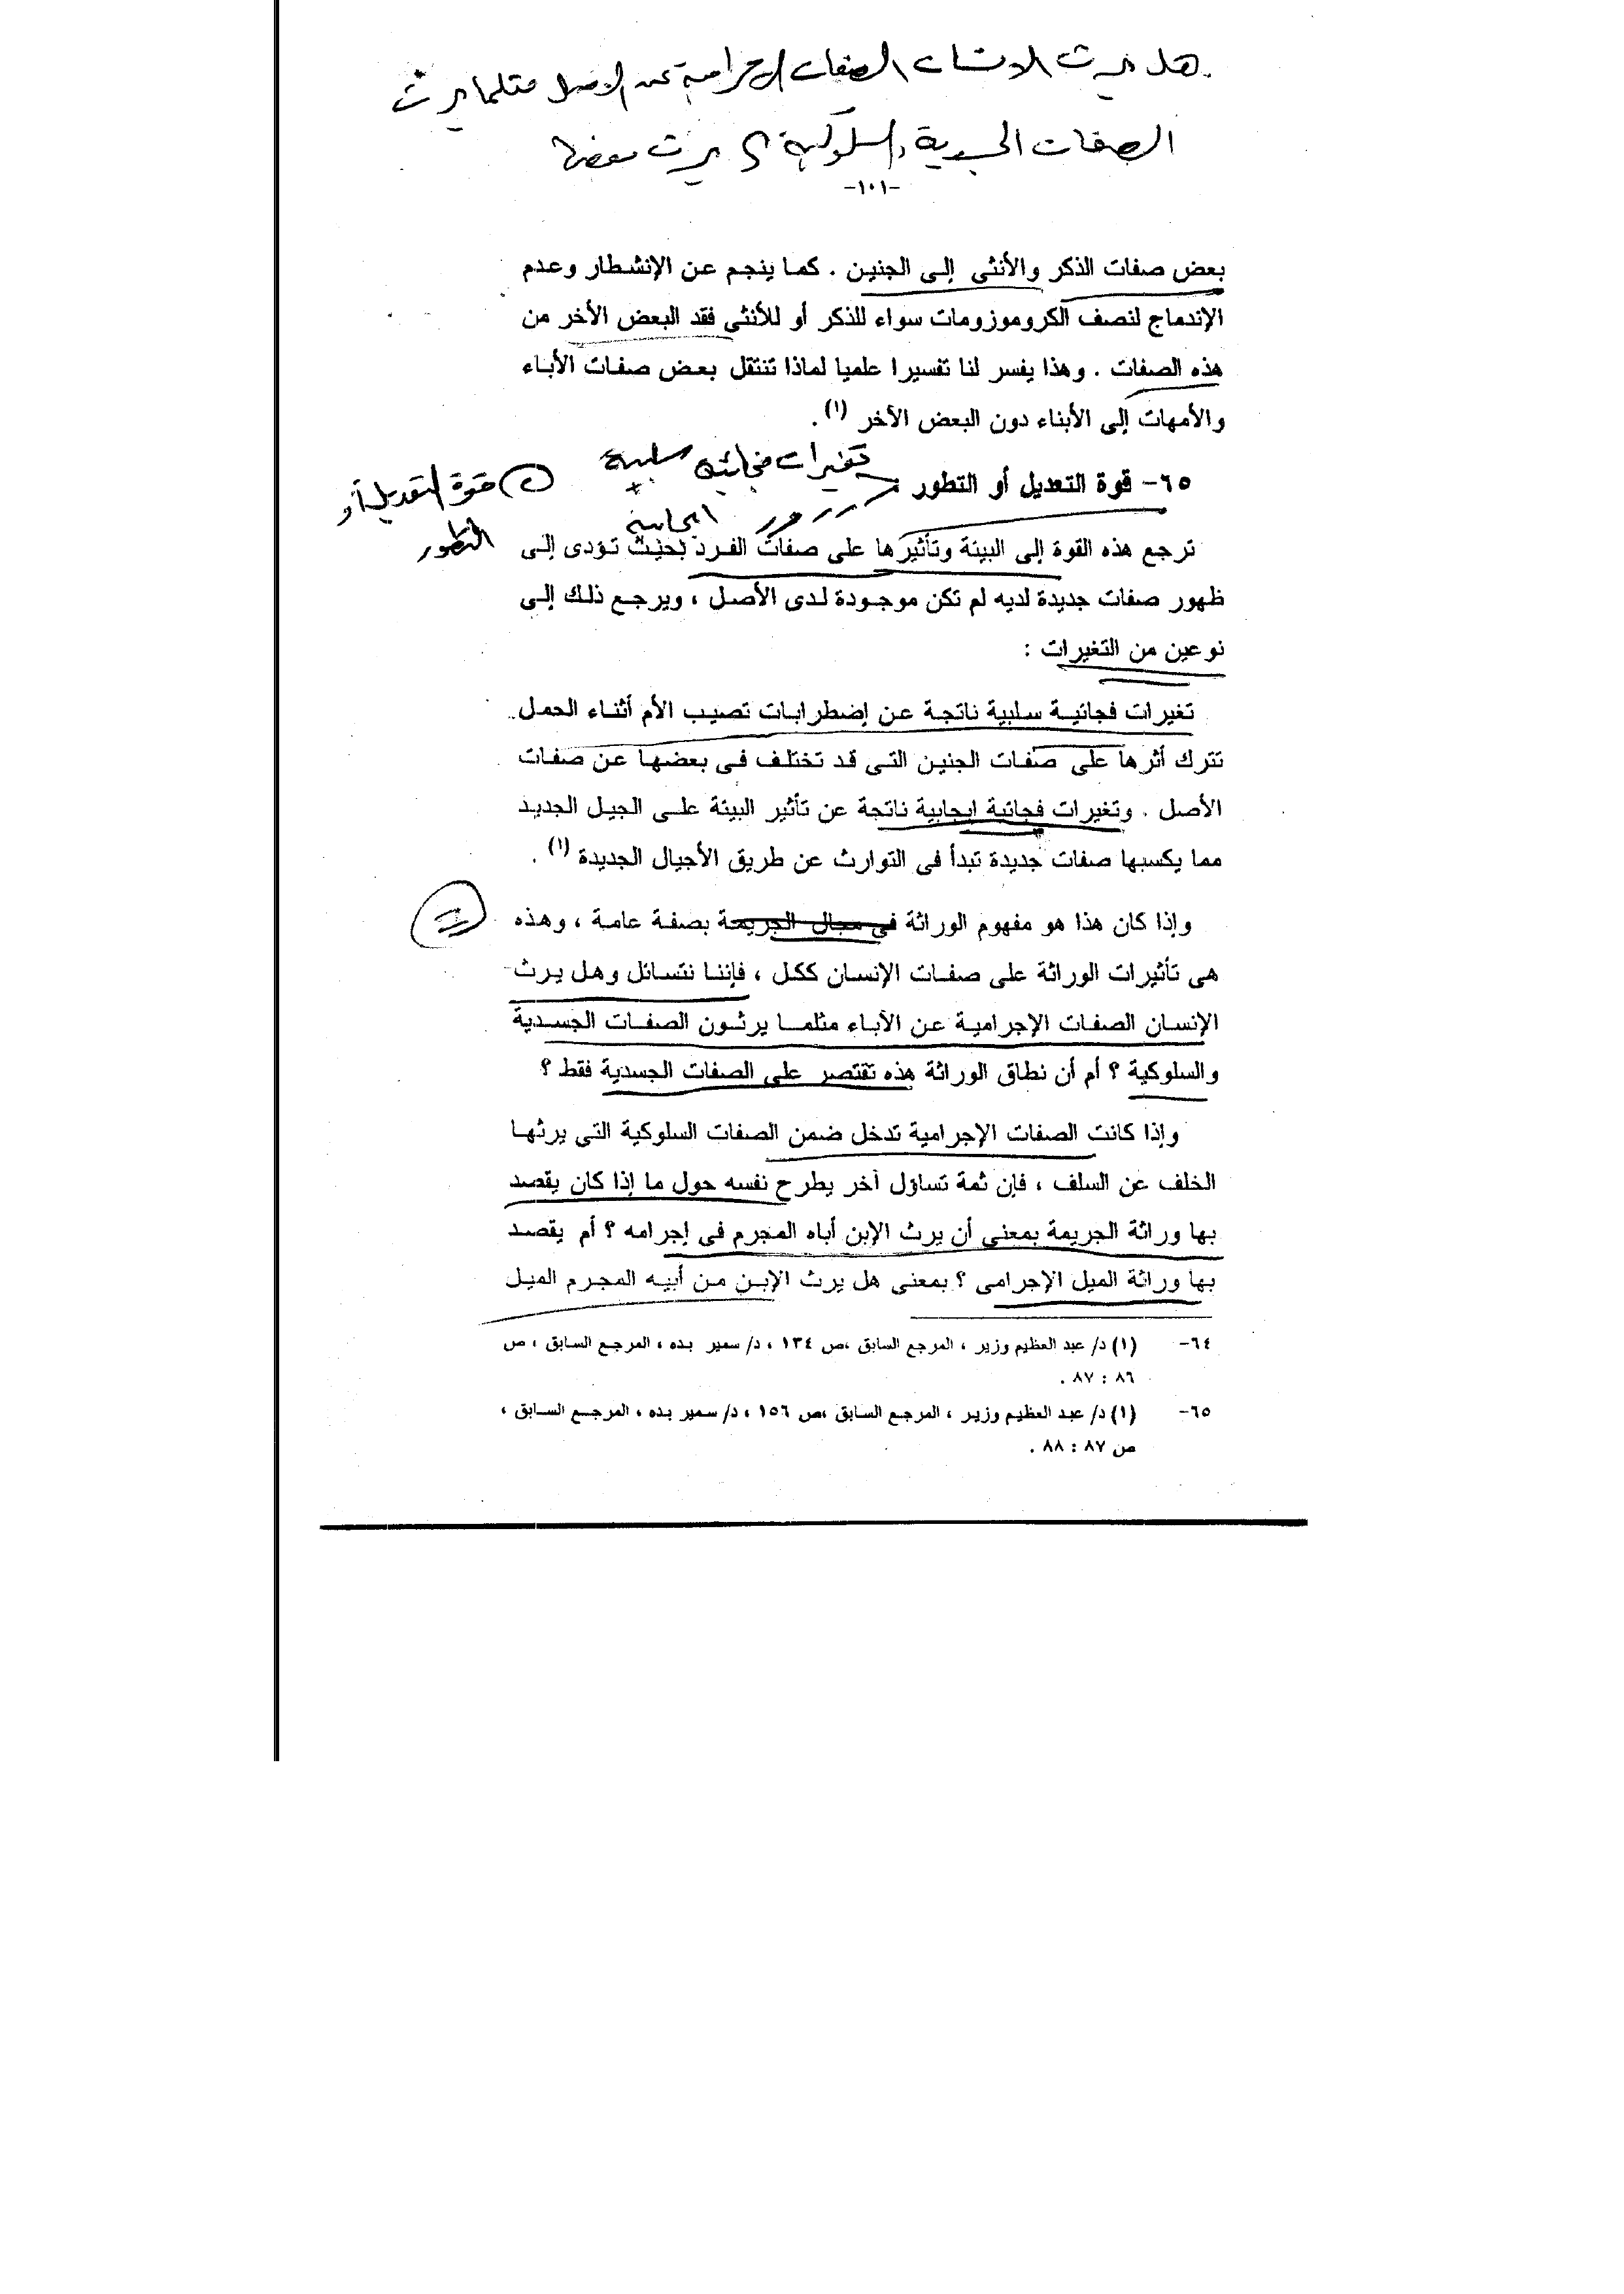 هل يرث الانسان الصفات الإجرامية عن الاصل مثلما يرث
الصفات الجسدية والسلوكية يرث بعضها
-١٠١-
بعض صفات الذكر والأنثى إلى الجنين . كما ينجم عن الإنشطار وعدم
الإندماج لنصف الكروموزومات سواء للذكر أو للأنثى فقد البعض الأخر من
هذه الصفات . وهذا يفسر لنا تفسيرا علميا لماذا تنتقل بعض صفات الأباء
والأمهات إلى الأبناء دون البعض الآخر (١) .
تغيرات فجائية سلبية
٦٥- قوة التعديل أو التطور :
قوة التعديل أو
التطور
ايجابية
ترجع هذه القوة إلى البيئة وتأثيرها على صفات الفرد بحيث تؤدى إلى
ظهور صفات جديدة لديه لم تكن موجودة لدى الأصل ، ويرجع ذلك إلى
نوعين من التغيرات :
تغيرات فجائية سلبية ناتجة عن إضطرابات تصيب الأم أثناء الحمل
تترك أثرها على صفات الجنين التى قد تختلف فى بعضها عن صفات
الأصل . وتغيرات فجائية إيجابية ناتجة عن تأثير البيئة على الجيل الجديد
مما يكسبها صفات جديدة تبدأ فى التوارث عن طريق الأجيال الجديدة (١) .
وإذا كان هذا هو مفهوم الوراثة فى مجال الجريمة بصفة عامة ، وهذه
هى تأثيرات الوراثة على صفات الإنسان ككل ، فإننا نتسائل وهل يرث
الإنسان الصفات الإجرامية عن الآباء مثلما يرثون الصفات الجسدية
والسلوكية ؟ أم أن نطاق الوراثة هذه تقتصر على الصفات الجسدية فقط ؟
وإذا كانت الصفات الإجرامية تدخل ضمن الصفات السلوكية التى يرثها
الخلف عن السلف ، فإن ثمة تساؤل آخر يطرح نفسه حول ما إذا كان يقصد
بها وراثة الجريمة بمعنى أن يرث الإبن أباه المجرم فى إجرامه ؟ أم يقصد
بها وراثة الميل الإجرامى ؟ بمعنى هل يرث الإبن من أبيه المجرم الميل
٦٤- (١) د/ عبد العظيم وزير ، المرجع السابق ،ص ١٣٤ ، د/ سمير بده ، المرجع السابق ، ص
٨٦ : ٨٧ .
٦٥- (١) د/ عبد العظيم وزير ، المرجع السابق ،ص ١٥٦ ، د/ سمير بده ، المرجع السابق ،
ص ٨٧ : ٨٨ .